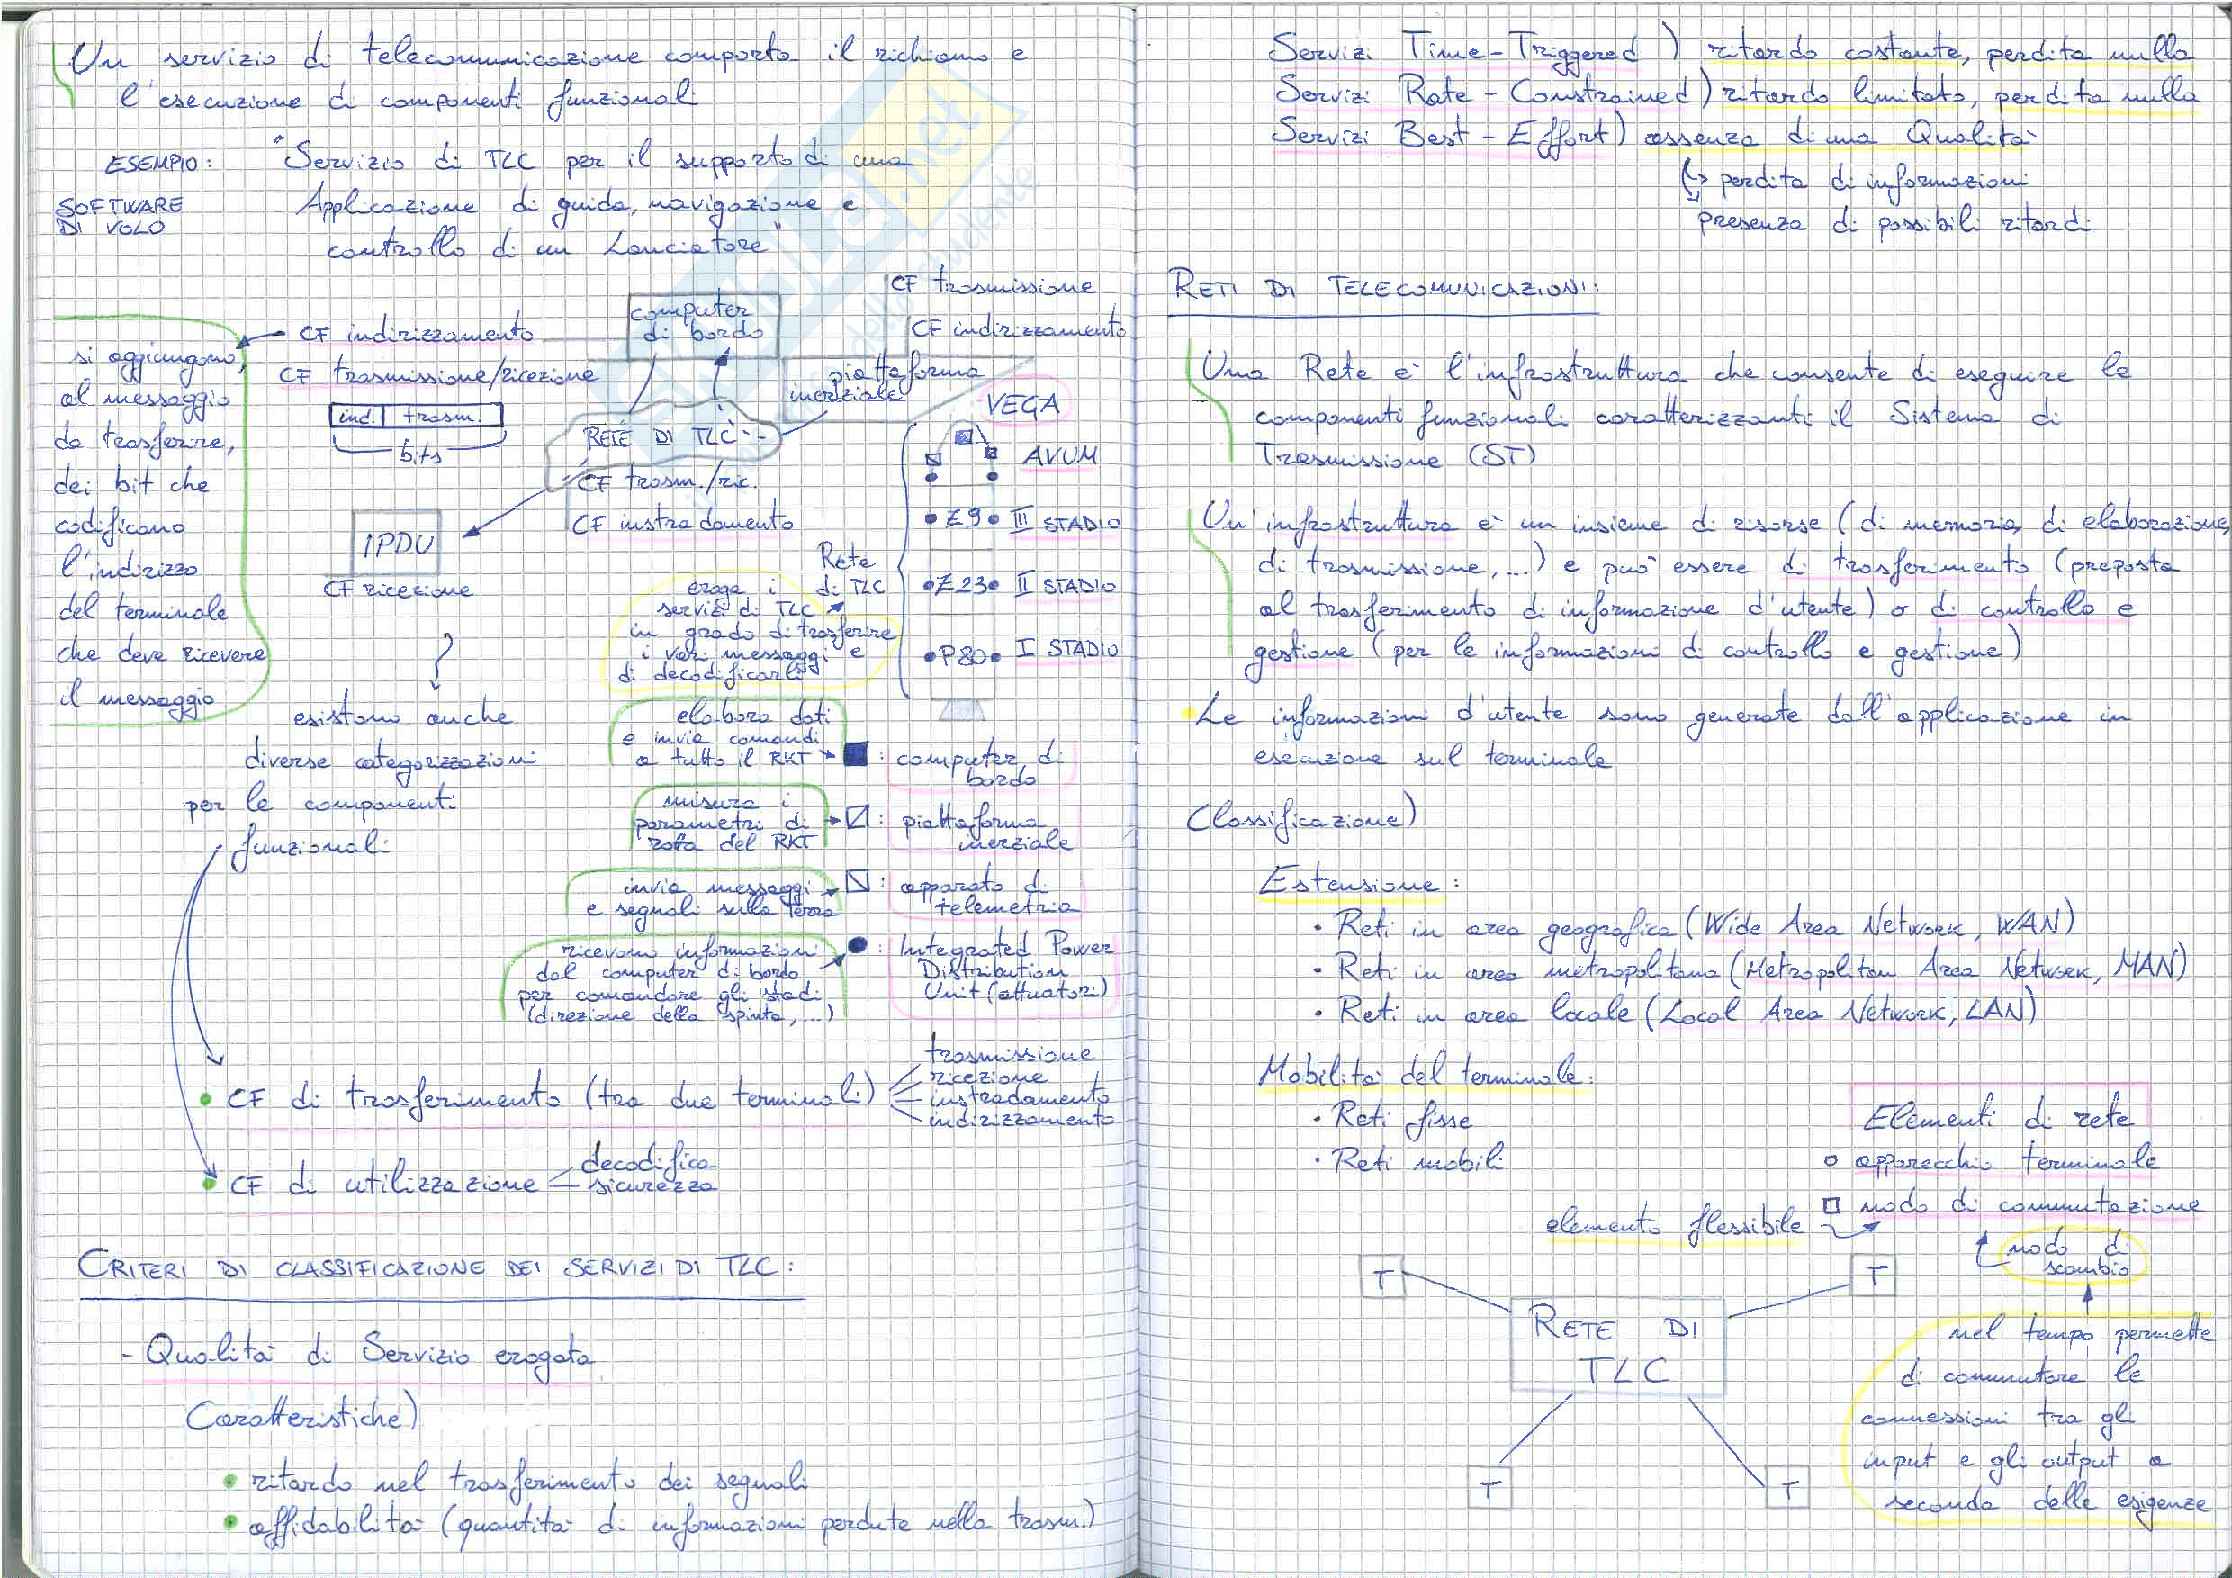 Un servizio di telecomunicazione comporta il richiamo e
l'esecuzione di componenti funzionali
ESEMPIO: "Servizio di TLC per il supporto di una
SOFTWARE DI VOLO
Applicazione di guida, navigazione e
controllo di un Lanciatore"
CF indirizzamento
CF trasmissione/ricezione
ind. trasm.
bits
si aggiungono,
al messaggio
da trasferire,
dei bit che
codificano
l'indirizzo
del terminale
che deve ricevere
il messaggio
computer
di bordo
CF trasmissione
CF indirizzamento
piattaforma
inerziale
RETE DI TLC
CF trasm./ric.
CF instradamento
IPDU
CF ricezione
VEGA
AVUM
Z9 III STADIO
Z23 II STADIO
P80 I STADIO
Rete
di TLC
eroga i
servizi di TLC
in grado di trasferire
i vari messaggi e
di decodificarli
elabora dati
e invia comandi
a tutto il RKT
: computer di
bordo
misura i
parametri di
rotta del RKT
: piattaforma
inerziale
invia messaggi
e segnali sulla Terra
: apparato di
telemetria
ricevono informazioni
dal computer di bordo
per comandare gli stadi
(direzione della spinta, ...)
: Integrated Power
Distribution
Unit (attuatori)
esistono anche
diverse categorizzazioni
per le componenti
funzionali
• CF di trasferimento (tra due terminali)
trasmissione
ricezione
instradamento
indirizzamento
• CF di utilizzazione
decodifica
sicurezza
CRITERI DI CLASSIFICAZIONE DEI SERVIZI DI TLC:
- Qualità di Servizio erogata
Caratteristiche)
• ritardo nel trasferimento dei segnali
• affidabilità (quantità di informazioni perdute nella trasm.)
Servizi Time-Triggered) ritardo costante, perdita nulla
Servizi Rate-Constrained) ritardo limitato, perdita nulla
Servizi Best-Effort) assenza di una Qualità
perdita di informazioni
presenza di possibili ritardi
RETI DI TELECOMUNICAZIONI:
Una Rete è l'infrastruttura che consente di eseguire le
componenti funzionali caratterizzanti il Sistema di
Trasmissione (ST)
Un'infrastruttura è un insieme di risorse (di memoria, di elaborazione,
di trasmissione, ...) e può essere di trasferimento (preposta
al trasferimento di informazione d'utente) o di controllo e
gestione (per le informazioni di controllo e gestione)
• Le informazioni d'utente sono generate dall'applicazione in
esecuzione sul terminale
Classificazione)
Estensione:
• Reti in area geografica (Wide Area Network, WAN)
• Reti in area metropolitana (Metropolitan Area Network, MAN)
• Reti in area locale (Local Area Network, LAN)
Mobilità del terminale:
• Reti fisse
• Reti mobili
Elementi di rete
apparecchio terminale
nodo di commutazione
elemento flessibile
nodo di
scambio
nel tempo permette
di commutare le
connessioni tra gli
input e gli output a
seconda delle esigenze
T
T
RETE DI
TLC
T
T